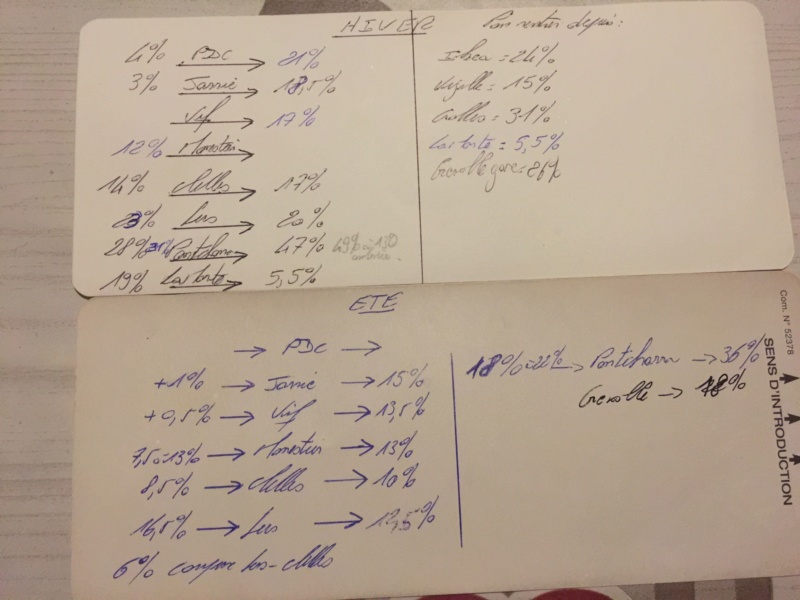 HIVER
4% PDC → 21%
3% Jarrie → 18,5%
Vif → 17%
12% Monestier →
14% Clelles → 17%
23% Lus → 20%
28% Pontcharra → 47%
19% → 5,5%
Pour rentrer depuis :
= 24%
Vizille = 15%
Crolles = 31%
= 5,5%
Grenoble gare = 26%
ETE
→ PDC →
+1% → Jarrie → 15%
+0,5% → Vif → 13,5%
7,5 à 13% → Monestier → 13%
8,5% → Clelles → 10%
16,5% → Lus → 12,5%
6% Lus-Clelles
18% = 22% → Pontcharra → 36%
Grenoble → 18%
Com. N° 52378
SENS D'INTRODUCTION